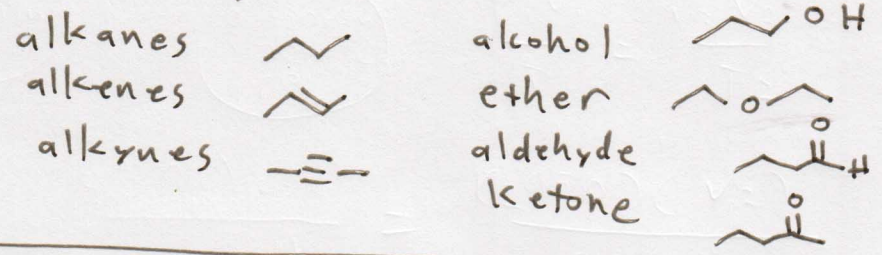 alkanes
alkenes
alkynes
alcohol
OH
ether
O
aldehyde
O
H
ketone
O